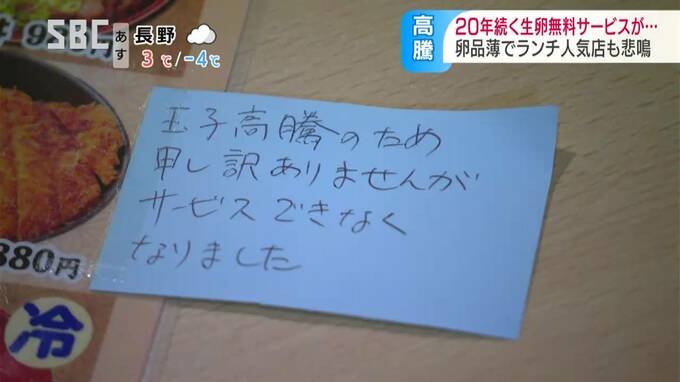 SBC
あす
長野
3℃/-4℃
高騰
20年続く生卵無料サービスが…
卵品薄でランチ人気店も悲鳴
玉子高騰のため
申し訳ありませんが
サービスできなく
なりました
880円
冷